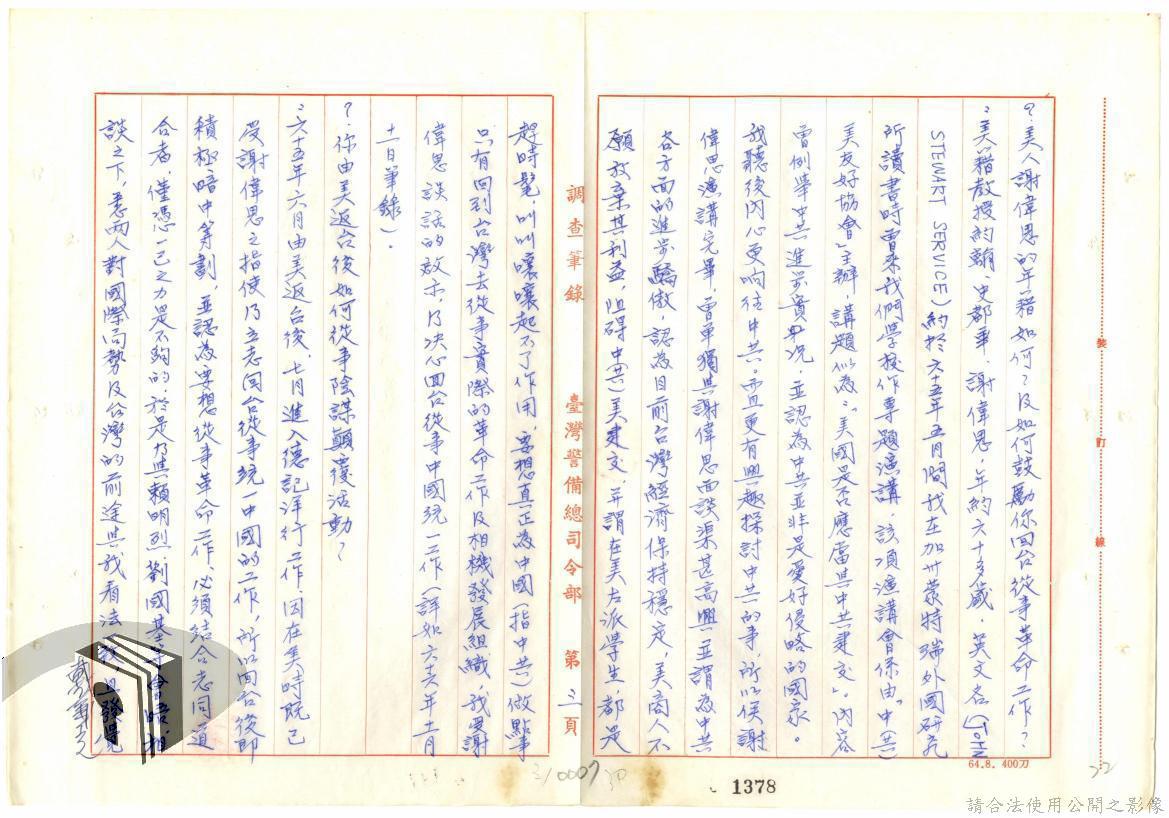 ？美人謝偉思的年籍如何？及如何鼓勵你回台從事革命工作？
：美籍教授約翰 史都華 謝偉思、年約六十多歲、英文名（JOHN
STEWART SERVICE）約於六十五年五月間我在加州蒙特瑞外國研究
所讀書時曾來我們學校作專題演講，該項演講會係由"中（共）
美友好協會」主辦，講題似為：「美國是否應當與中共建交」。內容
曾例舉中共進步實況，並認為中共並非是愛好侵略的國家。
我聽後內心更响往中共。而且更有興趣探討中共的事，所以俟謝
偉思演講完畢，曾單獨與謝偉思面談渠甚高興並謂為中共
各方面的進步驕傲，認為目前台灣經濟保持穩定，美商人不
願放棄其利益，阻碍中（共）美建交，并謂在美左派學生，都是
趕時髦，叫叫嚷嚷起不了作用，要想真正為中國（指中共）做點事
只有回到台灣去從事實際的革命工作及相機發展組織，我受謝
偉思談話的啟示，乃決心回台從事中國統一工作（詳如六六年十一月
十一日筆錄）。
？你由美返台後如何從事陰謀顛覆活動？
：六十五年六月由美返台後，七月進入德記洋行工作，因在美時既已
受謝偉思之指使乃立志回台從事統一中國的工作，所以回台後即
積極暗中籌劃，並認為要想從事革命工作，必須結合志同道
合者，僅憑一己之力是不夠的，於是乃與賴明烈、劉國基等會晤，相
談之下，悉兩人對國際局勢及台灣的前途與我看法一致，且發覺
調查筆錄 臺灣警備總司令部 第三頁
裝 訂 線
64.8. 400刀
1378
請合法使用公開之影像